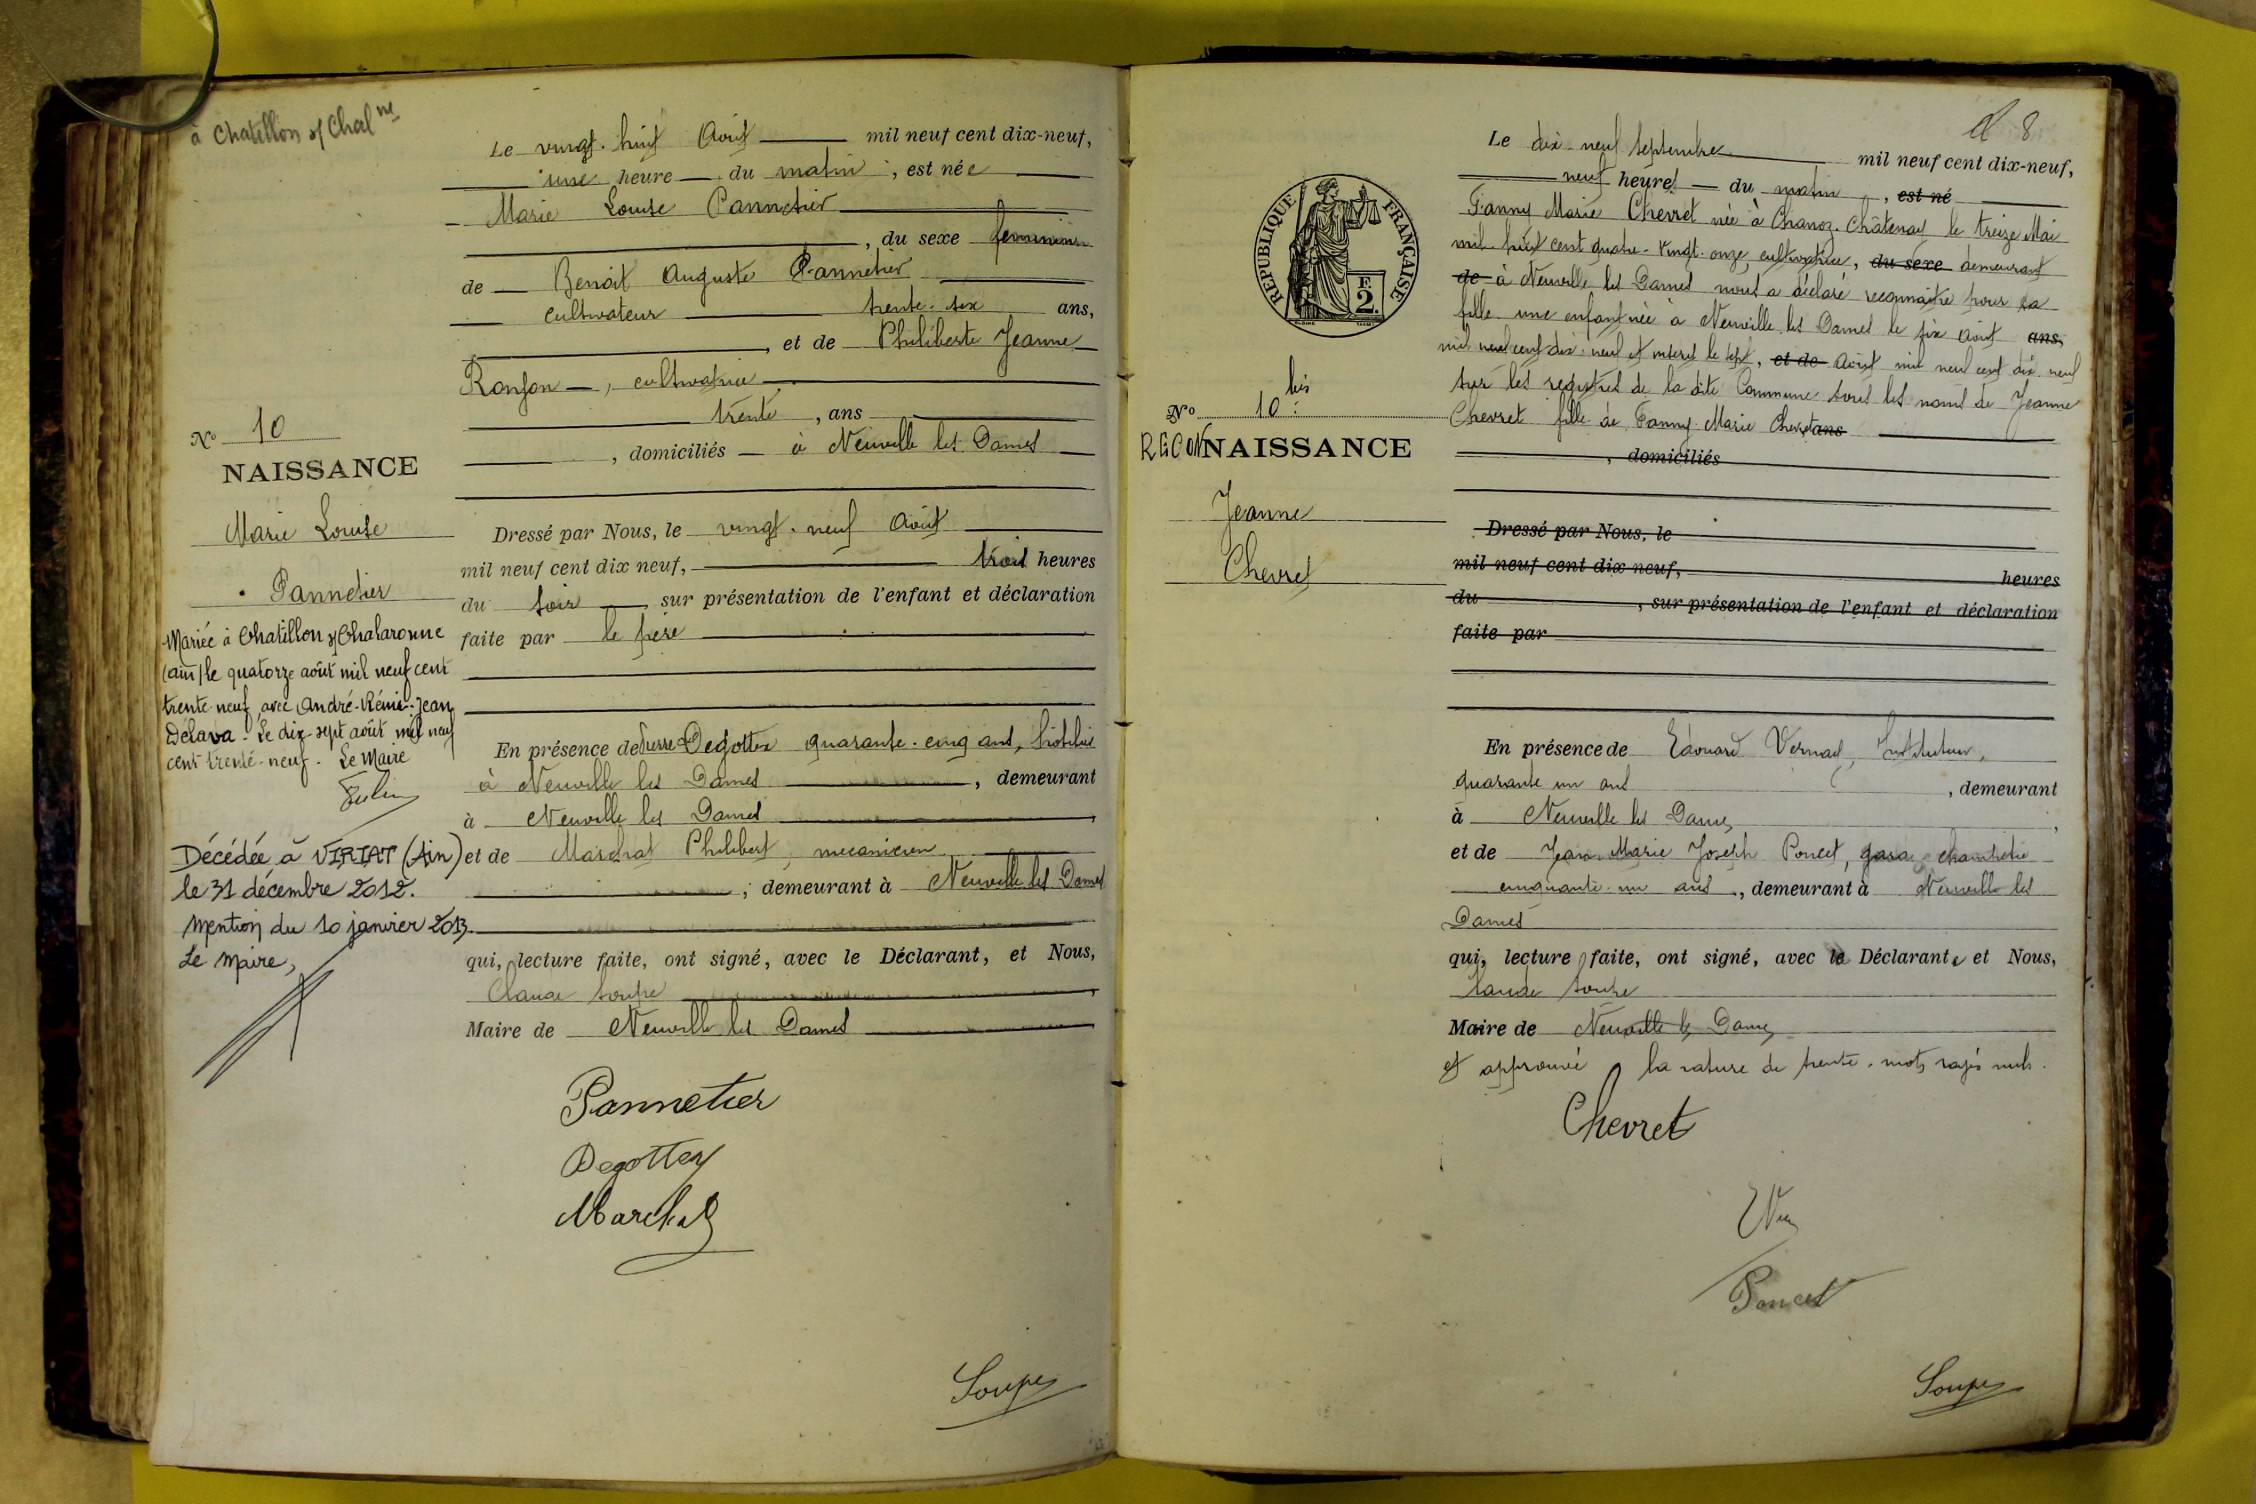 à Chatillon s/ Chal ne
Le vingt-huit Août mil neuf cent dix-neuf,
une heure du matin, est née
Marie Louise Pannetier
, du sexe feminin
de Benoit Auguste Pannetier
cultivateur trente-six ans,
, et de Philiberte Jeanne
Ronjon, cultivatrice
trente, ans
, domiciliés à Neuville les Dames
No 10
NAISSANCE
Marie Louise
Pannetier
Dressé par Nous, le vingt-neuf Août
mil neuf cent dix neuf, trois heures
du soir sur présentation de l'enfant et déclaration
faite par le père
Mariée à Chatillon s/Chalaronne
(ain) le quatorze août mil neuf cent
trente-neuf avec André-Rémi-Jean
Delava. Le dix-sept août mil neuf
cent trente-neuf. Le Maire
En présence de Pierre Degottex quarante-cinq ans,
à Neuville les Dames, demeurant
à Neuville les Dames
et de Marchat Philibert, mecanicien
; demeurant à Neuville les Dames
Décédée à VIRIAT (Ain)
le 31 décembre 2012.
Mention du 10 janvier 2013.
Le Maire,
qui, lecture faite, ont signé, avec le Déclarant, et Nous,
Claude Soupe
Maire de Neuville les Dames
Pannetier
Degottex
Marchat
Soupe
8
RÉPUBLIQUE FRANÇAISE
F.
2.
Le dix-neuf Septembre mil neuf cent dix-neuf,
neuf heures du matin, est né
Fanny Marie Chevret née à Chanoz-Châtenay le treize Mai
mil-huit cent quatre-vingt-onze, cultivatrice, du sexe demeurant
de à Neuville les Dames nous a déclaré reconnaitre pour sa
fille une enfant née à Neuville les Dames le six Août ans,
mil neuf cent dix-neuf et inscrit le sept, et de Août mil neuf cent dix-neuf
sur les registres de la dite Commune sous les noms de Jeanne
Chevret fille de Fanny Marie Chevret ans
, domiciliés
No 10 bis
RECONNAISSANCE
Jeanne
Chevret
Dressé par Nous, le
mil neuf cent dix neuf, heures
du , sur présentation de l'enfant et déclaration
faite par
En présence de Edouard Vernay, Instituteur,
quarante un ans, demeurant
à Neuville les Dames
et de Jean Marie Joseph Poncet, garde champêtre
cinquante-un ans, demeurant à Neuville les
Dames
qui, lecture faite, ont signé, avec la Déclarante et Nous,
Claude Soupe
Maire de Neuville les Dames
et approuvé la rature de trente-mots rayés nuls.
Chevret
Poncet
Soupe